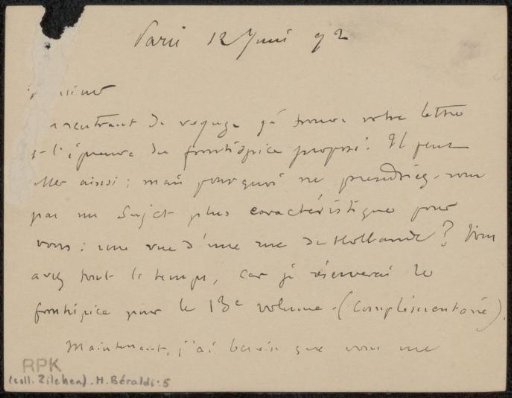 Paris 12 Juin 92
Monsieur
rentrant de voyage je trouve votre lettre
et l'épreuve du frontispice proposé. Il peut
aller ainsi ; mais pourquoi ne prendriez-vous
pas un sujet plus caractéristique pour
vous : une vue d'une rue de Hollande ? Vous
avez tout le temps, car je réserverai le
frontispice pour le 13e volume. (complémentaire).
Maintenant, j'ai besoin que vous me
RPK
(coll. Zilcken). H. Béraldi: 5